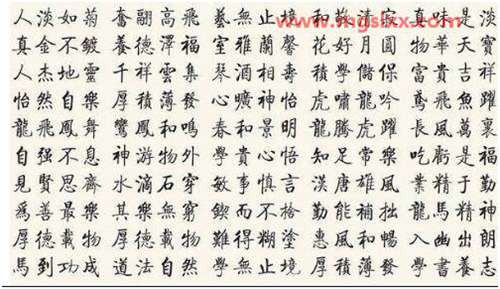 www.mgslxx.com
人淡如菊 奮翩高飛 藝無止境 和清 真味是淡
真金不鍍 養德澤福 室雅蘭馨 花好月圓 物華天寶
人杰地靈 千祥雲集 琴酒相壽 學儲 富貴吉祥
怡然自樂 厚積薄發 心曠神怡 虎嘯龍吟 鳶飛魚躍
龍飛鳳舞 鸞鳳和鳴 春和景明 龍騰虎躍 長風萬裏
自强不息 神游物外 學貴心悟 知足常樂 吃虧是福
見賢思齊 水滴石穿 敏事慎言 漢唐雄風 業精于勤
爲善最樂 其樂無窮 鍥而不捨 勤能補拙 龍馬精神
厚德載物 厚德載物 難得糊塗 惠風和暢 入幽出朗
馬到功成 道法自然 學無止境 厚積薄發 學書養志